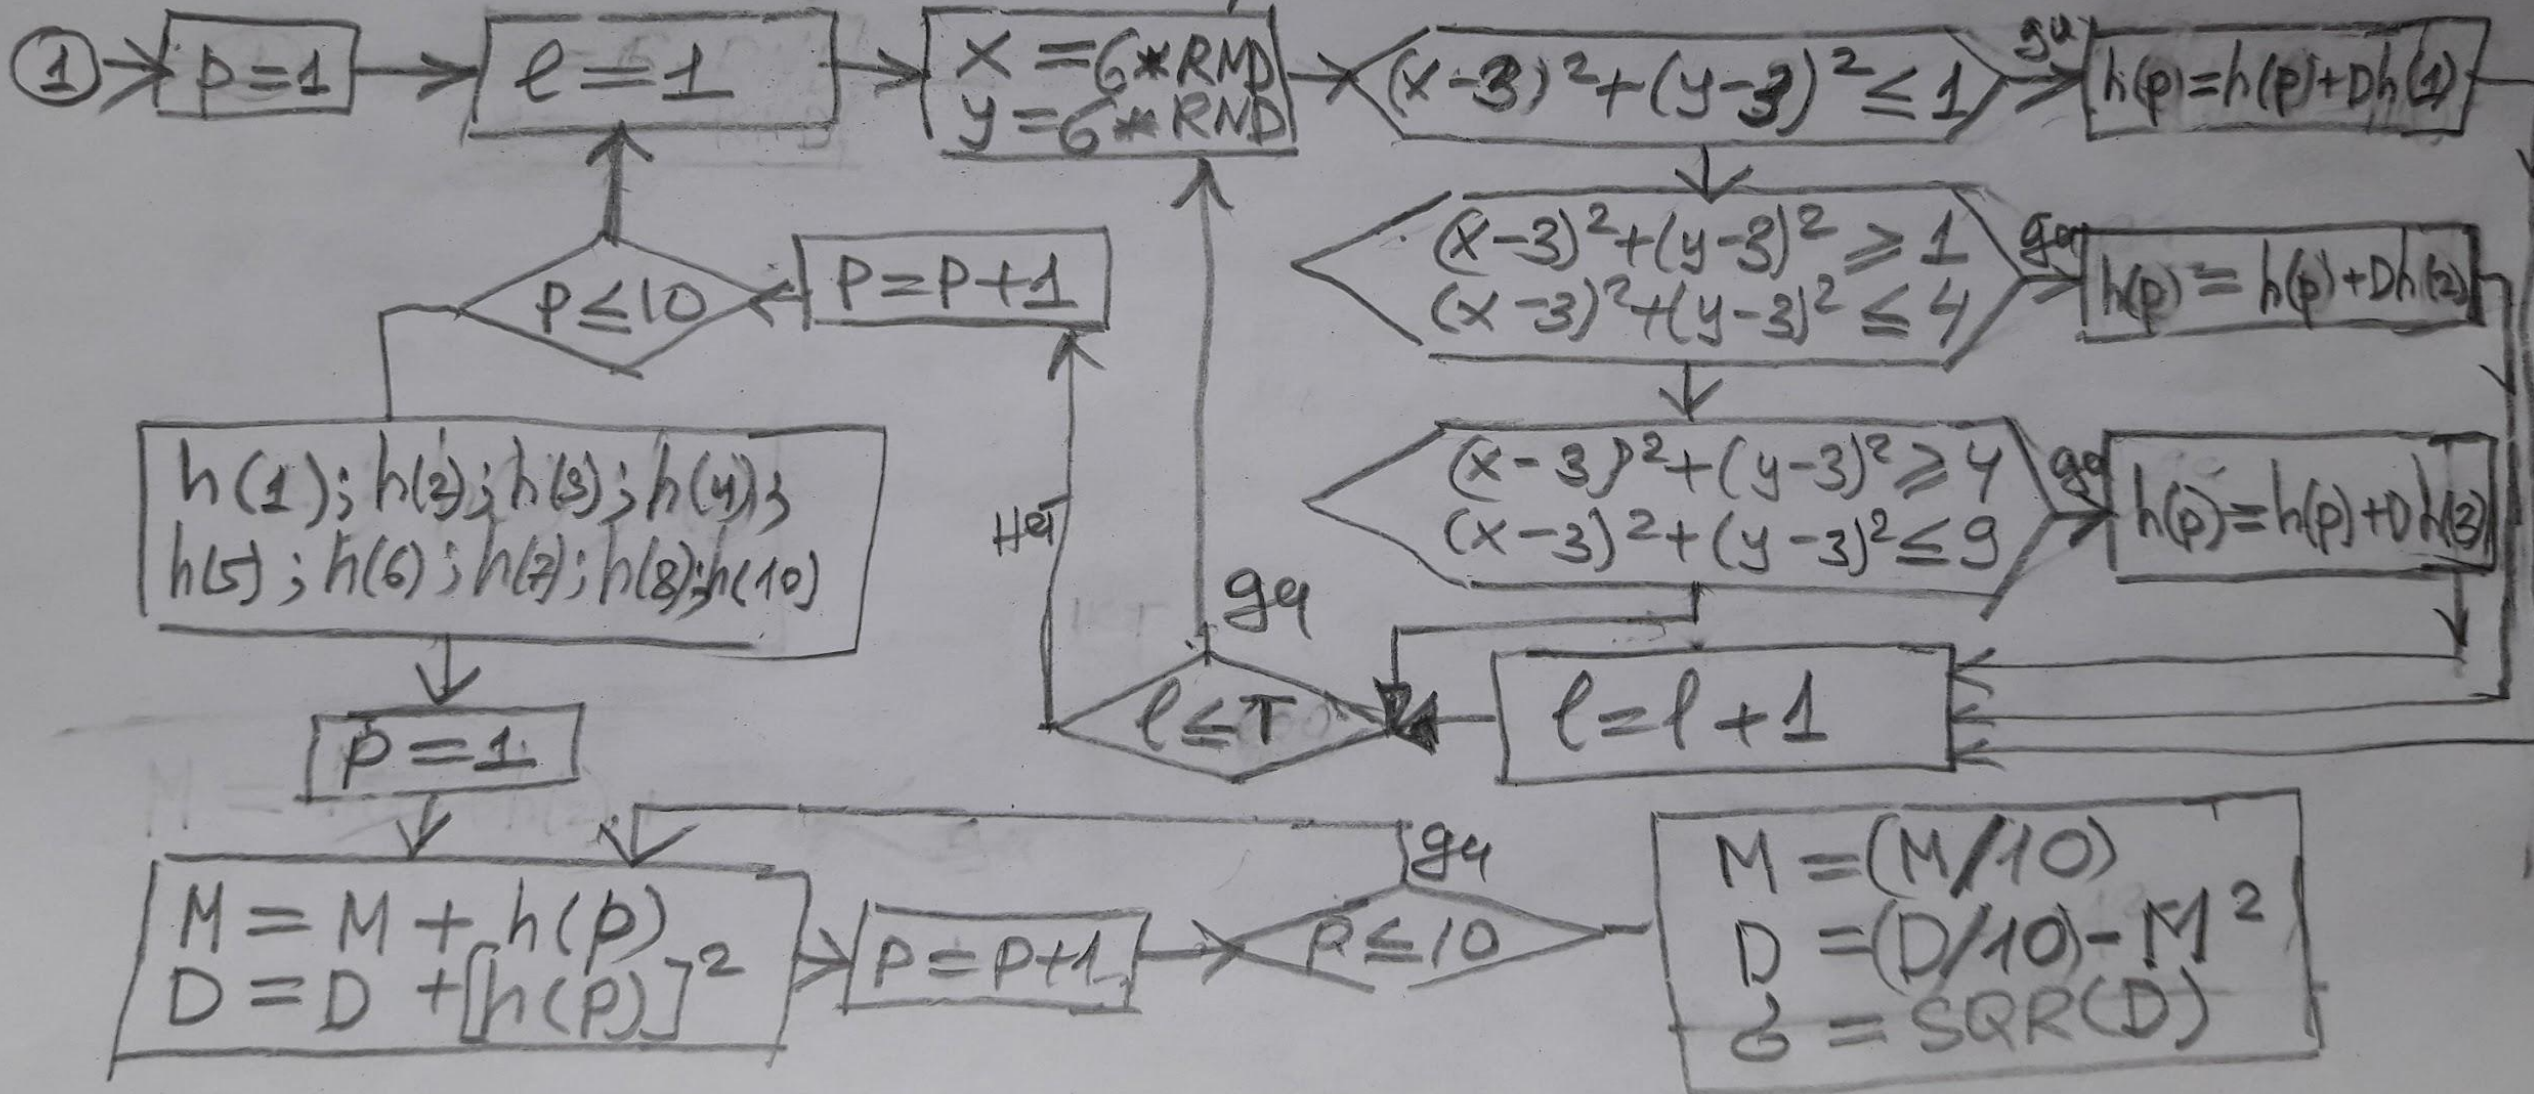 1
p=1
l=1
x=6*RND
y=6*RND
(x-3)²+(y-3)²≤1
да
h(p)=h(p)+Dh(1)
(x-3)²+(y-3)²≥1
(x-3)²+(y-3)²≤4
да
h(p)=h(p)+Dh(2)
p≤10
p=p+1
(x-3)²+(y-3)²≥4
(x-3)²+(y-3)²≤9
да
h(p)=h(p)+Dh(3)
h(1);h(2);h(3);h(4);
h(5);h(6);h(7);h(8);h(10)
Нет
да
l≤T
l=l+1
p=1
да
M=M+h(p)
D=D+[h(p)]²
p=p+1
p≤10
M=(M/10)
D=(D/10)-M²
б=SQR(D)